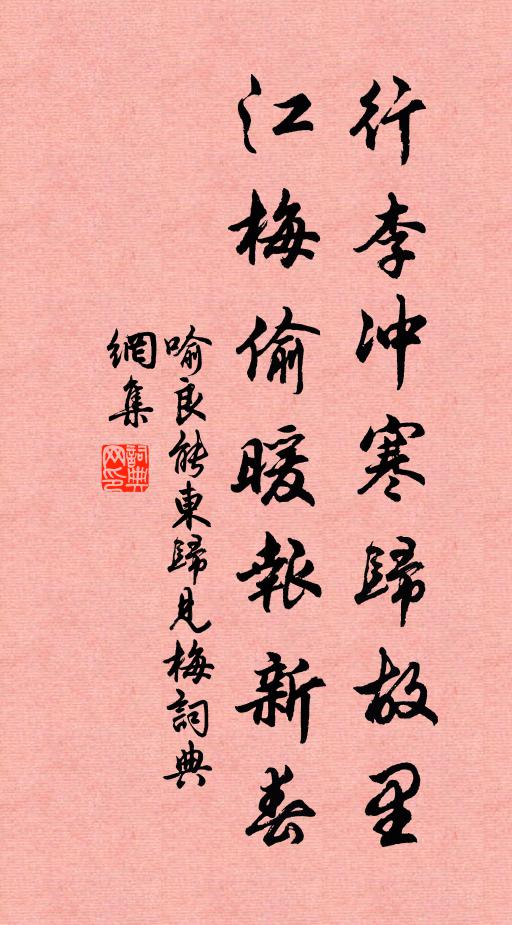 行李冲寒歸故里
江梅偷暖報新春
喻良能東歸見梅詞典
網集
詞典網印